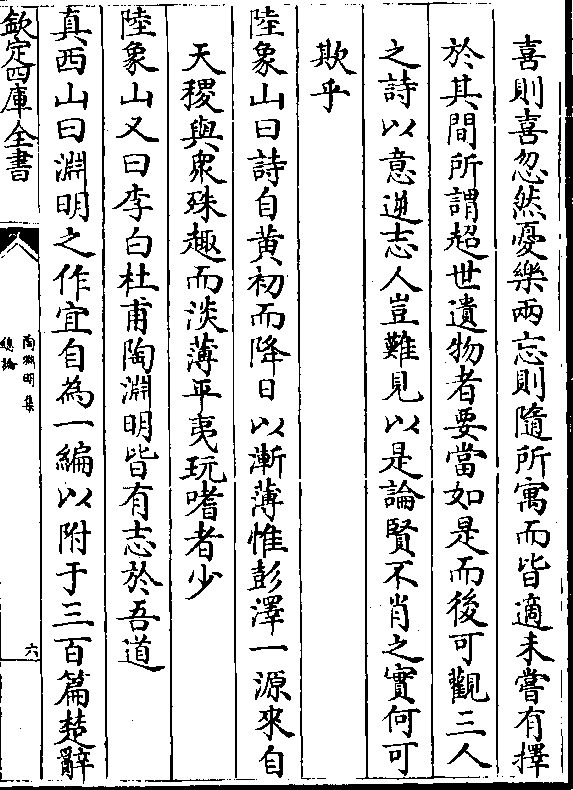 喜則喜忽然憂樂兩忘則隨所寓而皆適未嘗有擇
於其間所謂超世遺物者要當如是而後可觀三人
之詩以意逆志人豈難見以是論賢不肖之實何可
欺乎
陸象山曰詩自黃初而降日以漸薄惟彭澤一源來自
天稷與衆殊趣而淡薄平夷玩嗜者少
陸象山又曰李白杜甫陶淵明皆有志於吾道
真西山曰淵明之作宜自為一編以附于三百篇楚辭
欽定四庫全書
陶淵明集
總論
六